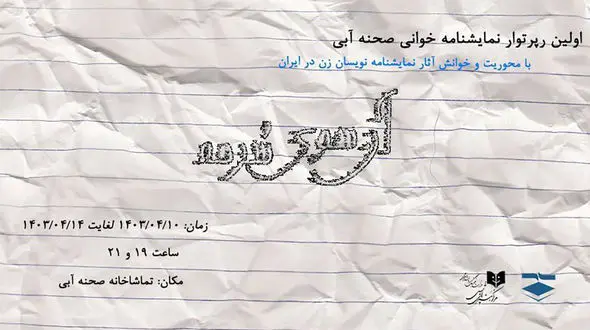 اولین رپرتوار نمایشنامه خوانی صحنه آبی
با محوریت و خوانش آثار نمایشنامه نویسان زن در ایران
از سوی
زمان: ۱۴۰۳/۰۴/۱۰ لغایت ۱۴۰۳/۰۴/۱۴
ساعت ۱۹ و ۲۱
مکان: تماشاخانه صحنه آبی